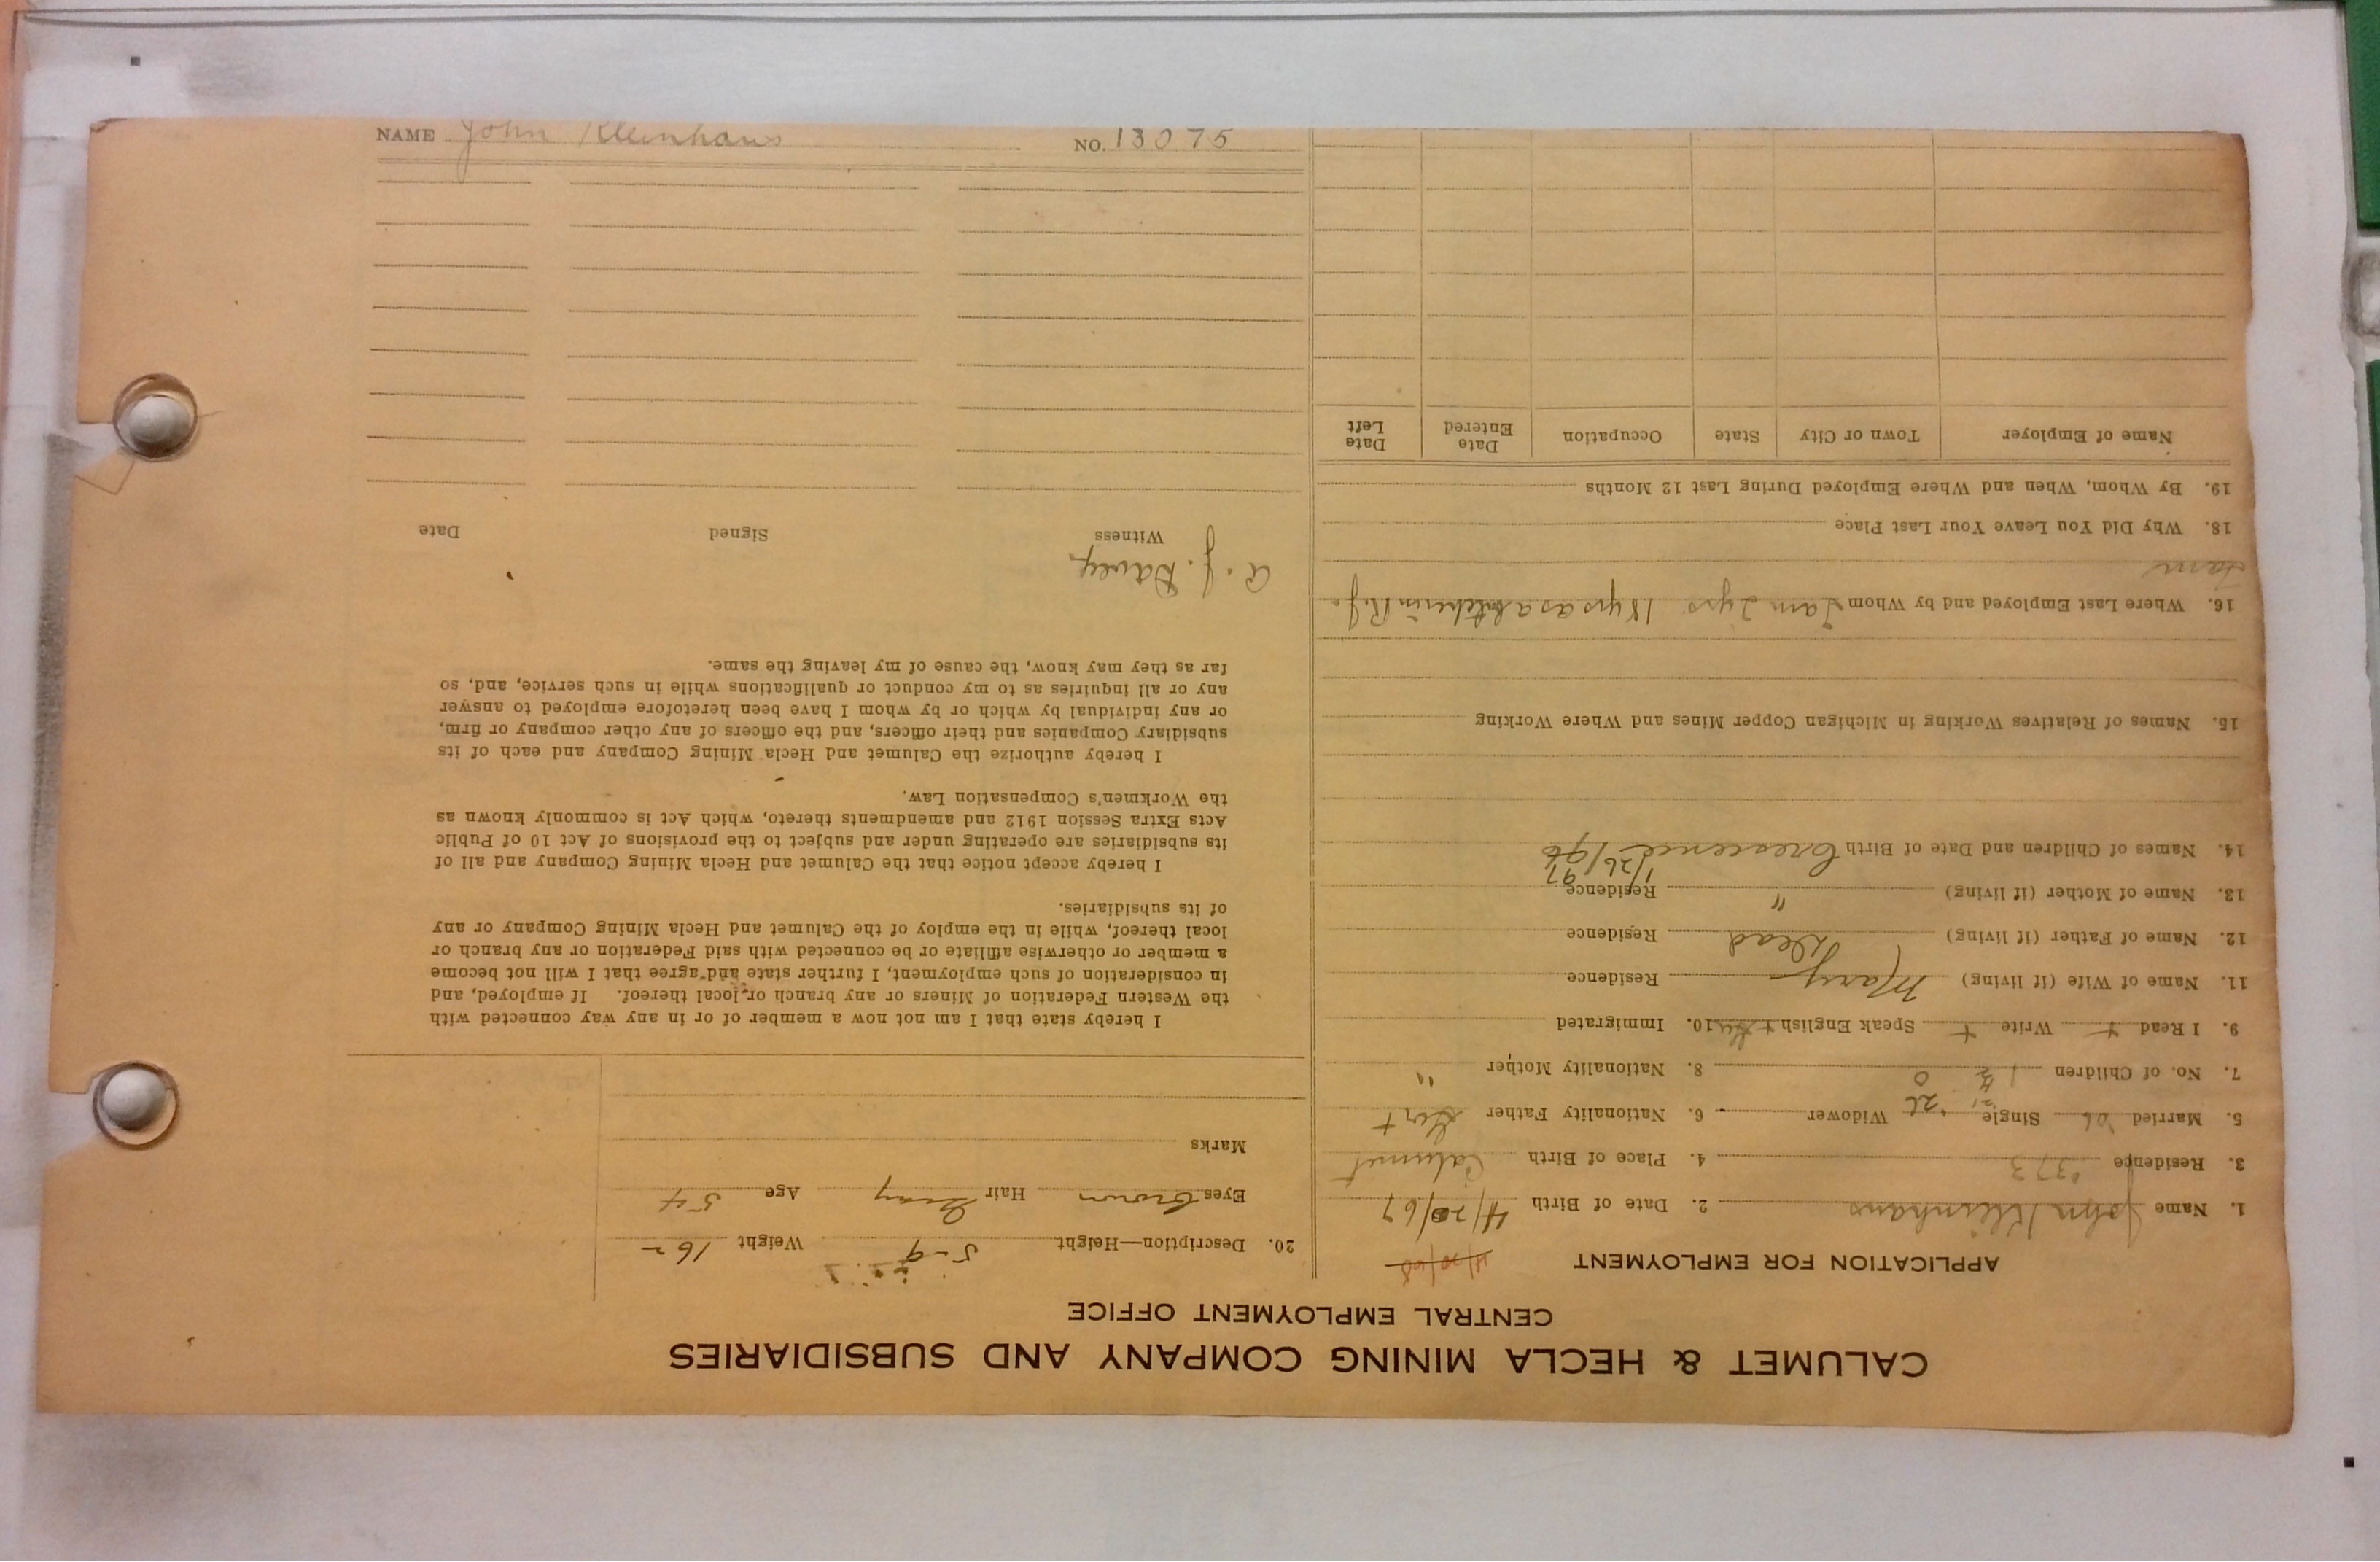 CALUMET & HECLA MINING COMPANY AND SUBSIDIARIES
CENTRAL EMPLOYMENT OFFICE
APPLICATION FOR EMPLOYMENT
1. Name John Kleinhans 2. Date of Birth 4/20/67
3. Residence 373 4. Place of Birth Calumet
5. Married Single Widower 6. Nationality Father
7. No. of Children 8. Nationality Mother "
9. I Read + Write + Speak English + 10. Immigrated
11. Name of Wife (if living) Mary Residence
12. Name of Father (if living) Dead Residence
13. Name of Mother (if living) " Residence
14. Names of Children and Date of Birth
15. Names of Relatives Working in Michigan Copper Mines and Where Working
16. Where Last Employed and by Whom
18. Why Did You Leave Your Last Place
19. By Whom, When and Where Employed During Last 12 Months
Name of Employer Town or City State Occupation Date Entered Date Left
20. Description—Height 5-9 Weight 162
Eyes Brown Hair Gray Age 54
Marks
I hereby state that I am not now a member of or in any way connected with
the Western Federation of Miners or any branch or local thereof. If employed, and
in consideration of such employment, I further state and agree that I will not become
a member or otherwise affiliate or be connected with said Federation or any branch or
local thereof, while in the employ of the Calumet and Hecla Mining Company or any
of its subsidiaries.
I hereby accept notice that the Calumet and Hecla Mining Company and all of
its subsidiaries are operating under and subject to the provisions of Act 10 of Public
Acts Extra Session 1912 and amendments thereto, which Act is commonly known as
the Workmen's Compensation Law.
I hereby authorize the Calumet and Hecla Mining Company and each of its
subsidiary Companies and their officers, and the officers of any other company or firm,
or any individual by which or by whom I have been heretofore employed to answer
any or all inquiries as to my conduct or qualifications while in such service, and, so
far as they may know, the cause of my leaving the same.
A. J. Davey
Witness Signed Date
NAME John Kleinhans NO. 13075